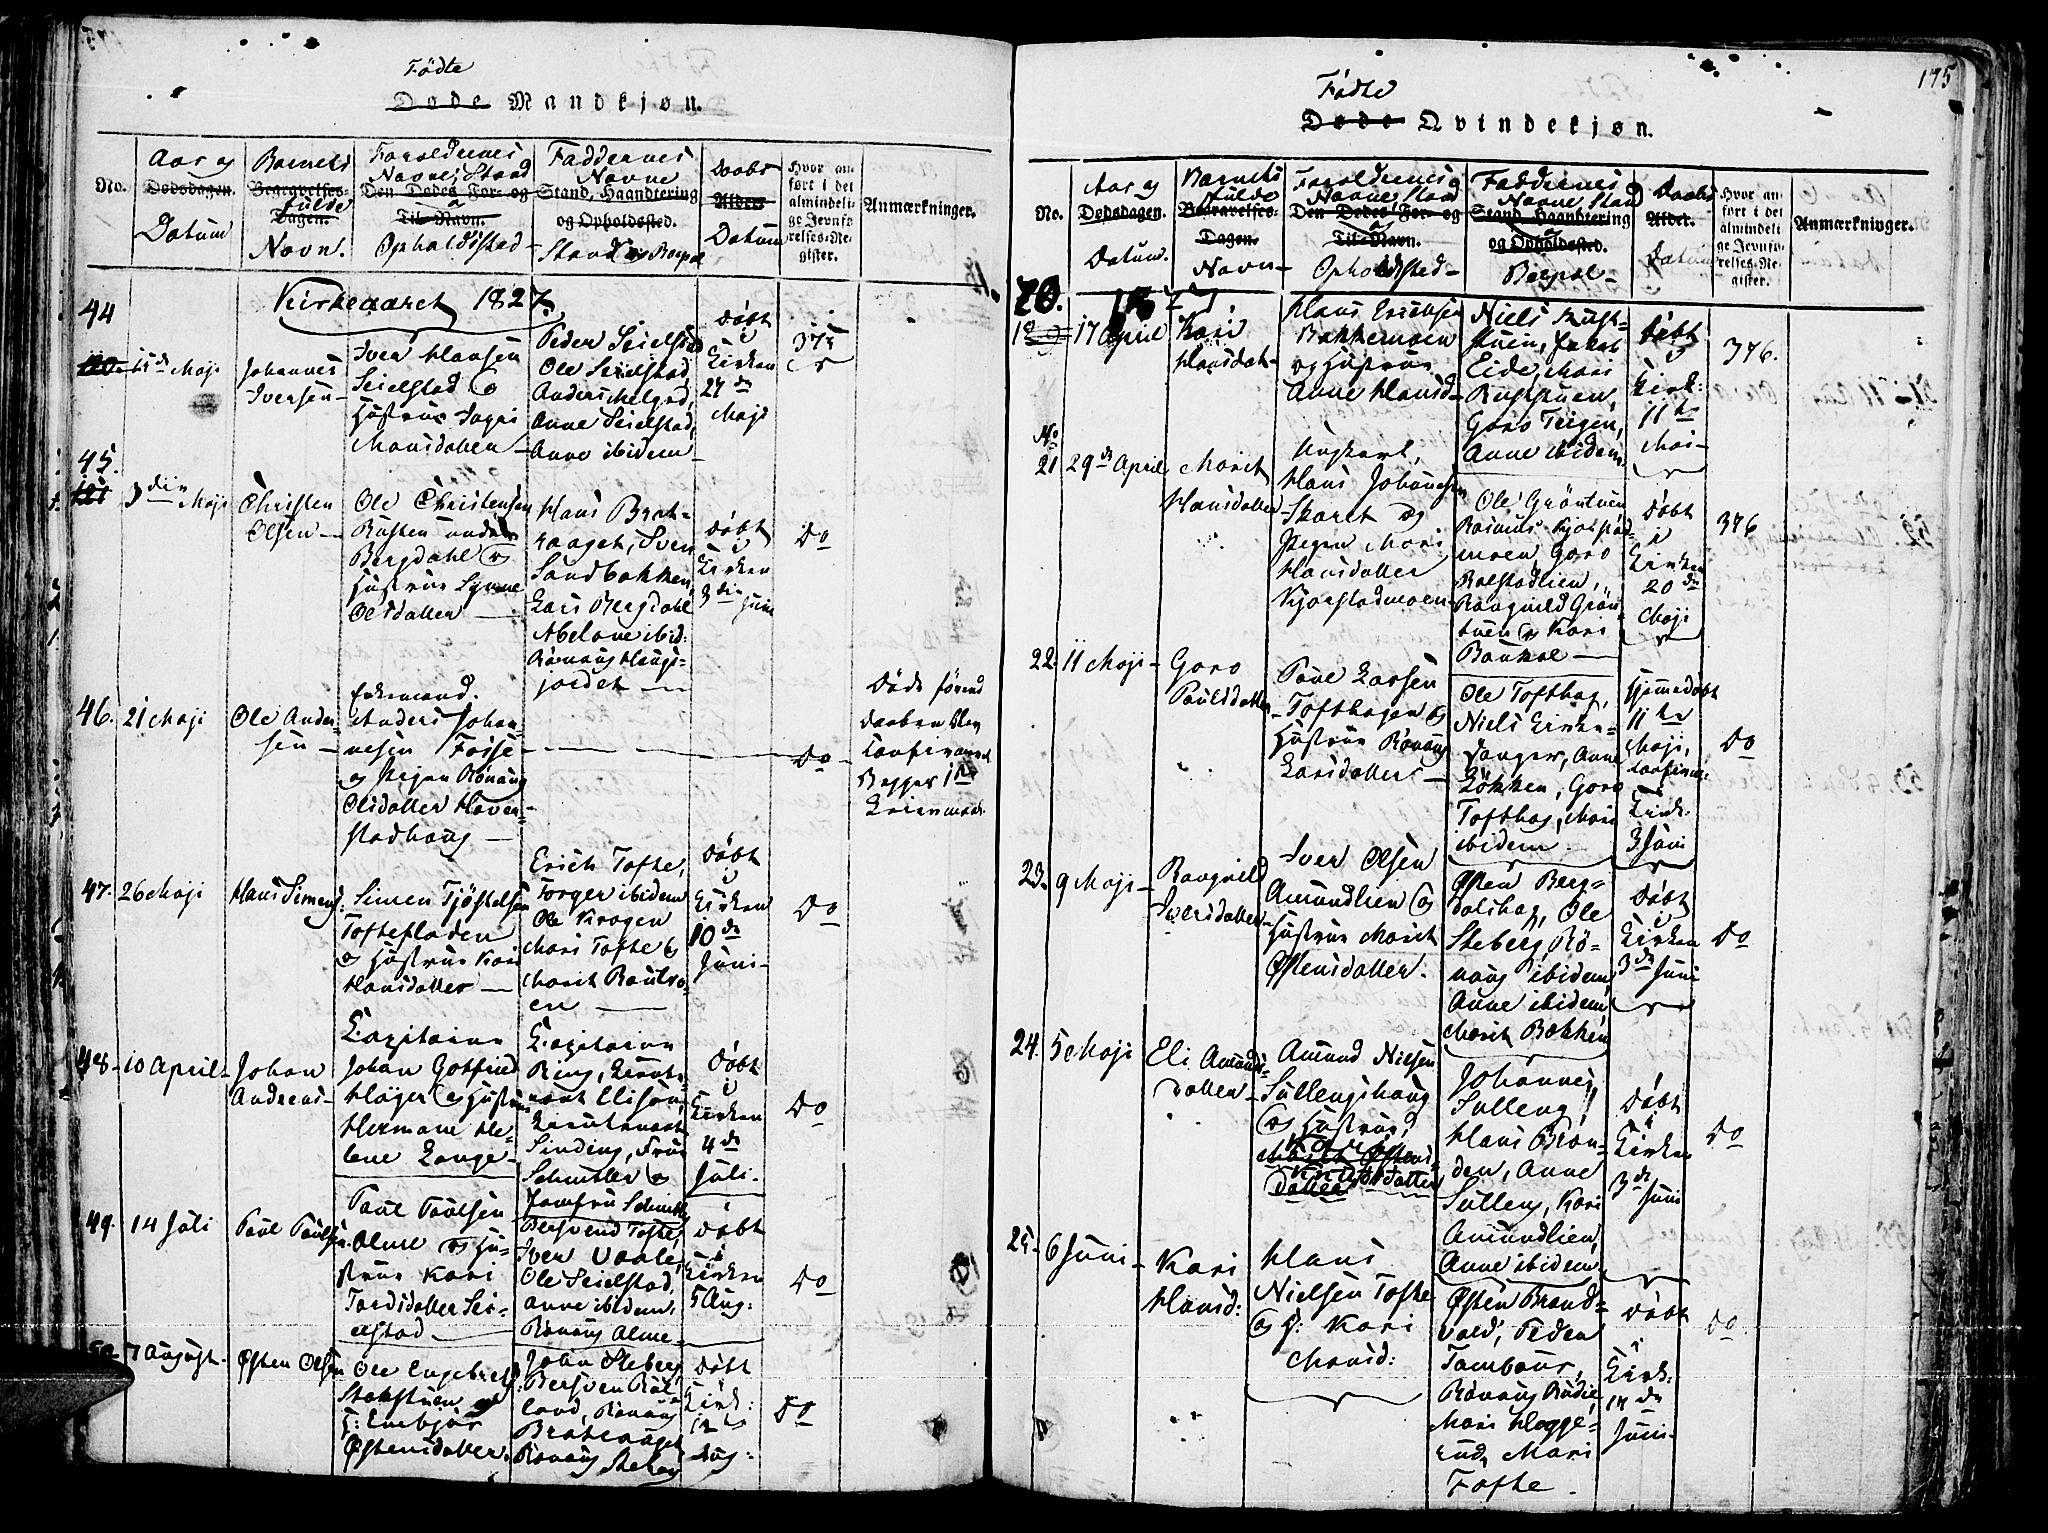 Fødte
Døde Mandkjøn.
No.
Aar og
Dødsdagen.
Datum
Barnets
Begravelses-
fulde
Dagen.
Navn.
Forældrenes
Navne, Stand og
Den Dødes For- og
Til-Navn.
Opholdssted
Faddernes
Navne
Stand, Haandtering
og Opholdssted.
Daabs
Alder
Datum
Hvor an-
ført i det
almindeli-
ge Jevnfø-
relses-Re-
gister.
Anmærkninger.
Kirkeaaret 1827.
44
15de Maji
Johannes
Iversen
Iver Hansen
Seielstad og
Hustrue Ingri
Hansdatter
Peder Seielstad
Ole Seielstad
Anders Melgod
Anne Seielstad,
Anne ibidem
Døbt
i
Kirken
27de
Maji
375
45.
121
3die Maji
Christen
Olsen
Ole Christensen
Rusten under
Bergdahl og
Hustrue Synne
Olsdatter
Hans Brat-
haaget, Sven
Sandbakken,
Lars Bergdahl
Abelone ibid:
Rønnaug Haugs-
jordet
Døbt
i
Kirken
3die Juni
Do
46.
21 Maji
Ole Ander-
sen
Enkemand
Anders Johan-
nesen Fosse
og Pigen Rønnaug
Olsdatter Haver-
stadhaug
Do
Døde førend
Daaben blev
Confirmeret
Begges 1ste
Leiermaal
47.
26 Maji
Hans Simens:
Simen Tjøstelsen
Toftefladen
og Hustrue Kari
Hansdatter
Erich Tofte,
Torger ibidem
Ole Kragen
Mari Tofte og
Marit Bautro-
en
Døbt
i
Kirken
10de
Juni
Do
48
10 April
Johan
Andreas
Capitaine
Johan Gotfried
Høyer og Hustrue
Hermane He-
lene Lange
Capitaine
Ring, Lieute-
nant Elison,
Lieutenant
Sinding, Frue
Schmitler og
Jomfru Schmitler
Døbt
i
Kirken
4de
Juli
Do
49.
14 Juli
Poul Poulsen
Poul Poulsen
Alme og Hu-
strue Kari
Tordsdatter Sei-
elstad
Bersvend Tofte,
Iver Vaale,
Ole Seielstad,
Anne ibidem,
Rønnaug Alme
Døbt
i
Kirken
5 Aug:
Do
50
7 August
Østen Olsen
Ole Engebrets:
Stokstuen og
H: Embjør
Østensdatter
John Steberg
Bersven Röt-
land, Rønnaug
Bratehaget
Rønnaug Steberg
Døbt
i
Kirk:
12te
Aug:
Do
175
Fødte
Døde Qvindekjøn.
No.
Aar og
Dødsdagen.
Datum.
Barnets
fulde
Begravelses-
Dagen.
Navn
Forældrenes
Navne, Stand og
Den Dødes For- og
Til-Navn.
Opholdssted
Faddernes
Navne, Stand og
Stand, Haandtering
og Opholdssted.
Daabs
Alder.
Datum
Hvor an-
ført i det
almindeli-
ge Jevnfø-
relses-Re-
gister.
Anmærkninger.
20.
17 April
Kari
Hansdat-
Hans Erichsen
Bakkemoen
og Hustrue
Anne Hansd
Niels Rust-
stuen, Jakob
Eide, Mari
Ruststuen,
Goro Teigen,
Anne ibidem
Døbt
i
Kirk:
11te
Mai
376.
No
21
29de April
Marit
Hansdatter
Ungkarl,
Hans Johannesen
Skaret og
Pigen Mari
Hansdatter
Kjorstadmoen
Ole Grøntuen
Rasmus Kjorstad-
moen, Goro
Rolstadlien,
Rangnild Grøn-
tuen og Kari
Døbt
i
Kirken
20de
Maji
376
22.
11 Maji
Goro
Poulsdatter
Poul Larsen
Tofthagen og
Hustrue Rønnaug
Larsdatter
Ole Tofthag,
Niels Kirke-
sanger, Anne
Løkken, Goro
Tofthag, Mari
ibidem
Hjemmedøbt
11te
Maji,
confirm:
Kirk:
3 Juni
Do
23.
9 Maji
Rangnild
Iversdatter
Iver Olsen
Amundlien og
Hustrue Marit
Østensdatter.
Østen Berg-
dalshag, Ole
Steberg, Rø-
naug ibidem
Anne ibidem,
Marit Bakken
Døbt
i
Kirken
3de Juni
Do
24.
5 Maji
Eli Amunds-
datter
Amund Nielsen
Sullengshaug
og Hustrue,
Marit Østens-
datter
Johannes
Sulleng,
Hans Bran-
den, Anne
Sulleng, Kari
Amundlien,
Anne ibidem
Døbt
i
Kirken
3de
Juni
Do
25
6 Juni
Kari
Hansd:
Hans
Nielsen Tofte
og H: Kari
Hansd:
Østen Brand-
vold, Peder
Tambour,
Rønnaug Rudie,
Mari Hegge-
rud, Mari
Tofte
Døbt
i
Kirk:
17de
Juni
Do